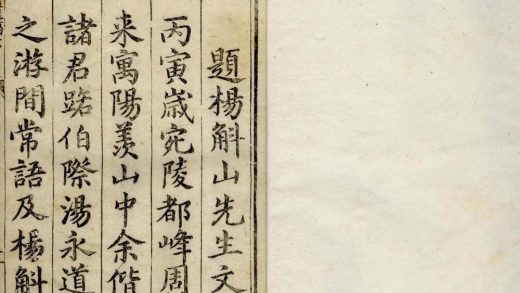 題楊斛山先生文
丙寅歲宛陵都峰周
来寓陽羨山中余偕
諸君踮伯際湯永道
之游間常語及楊斛